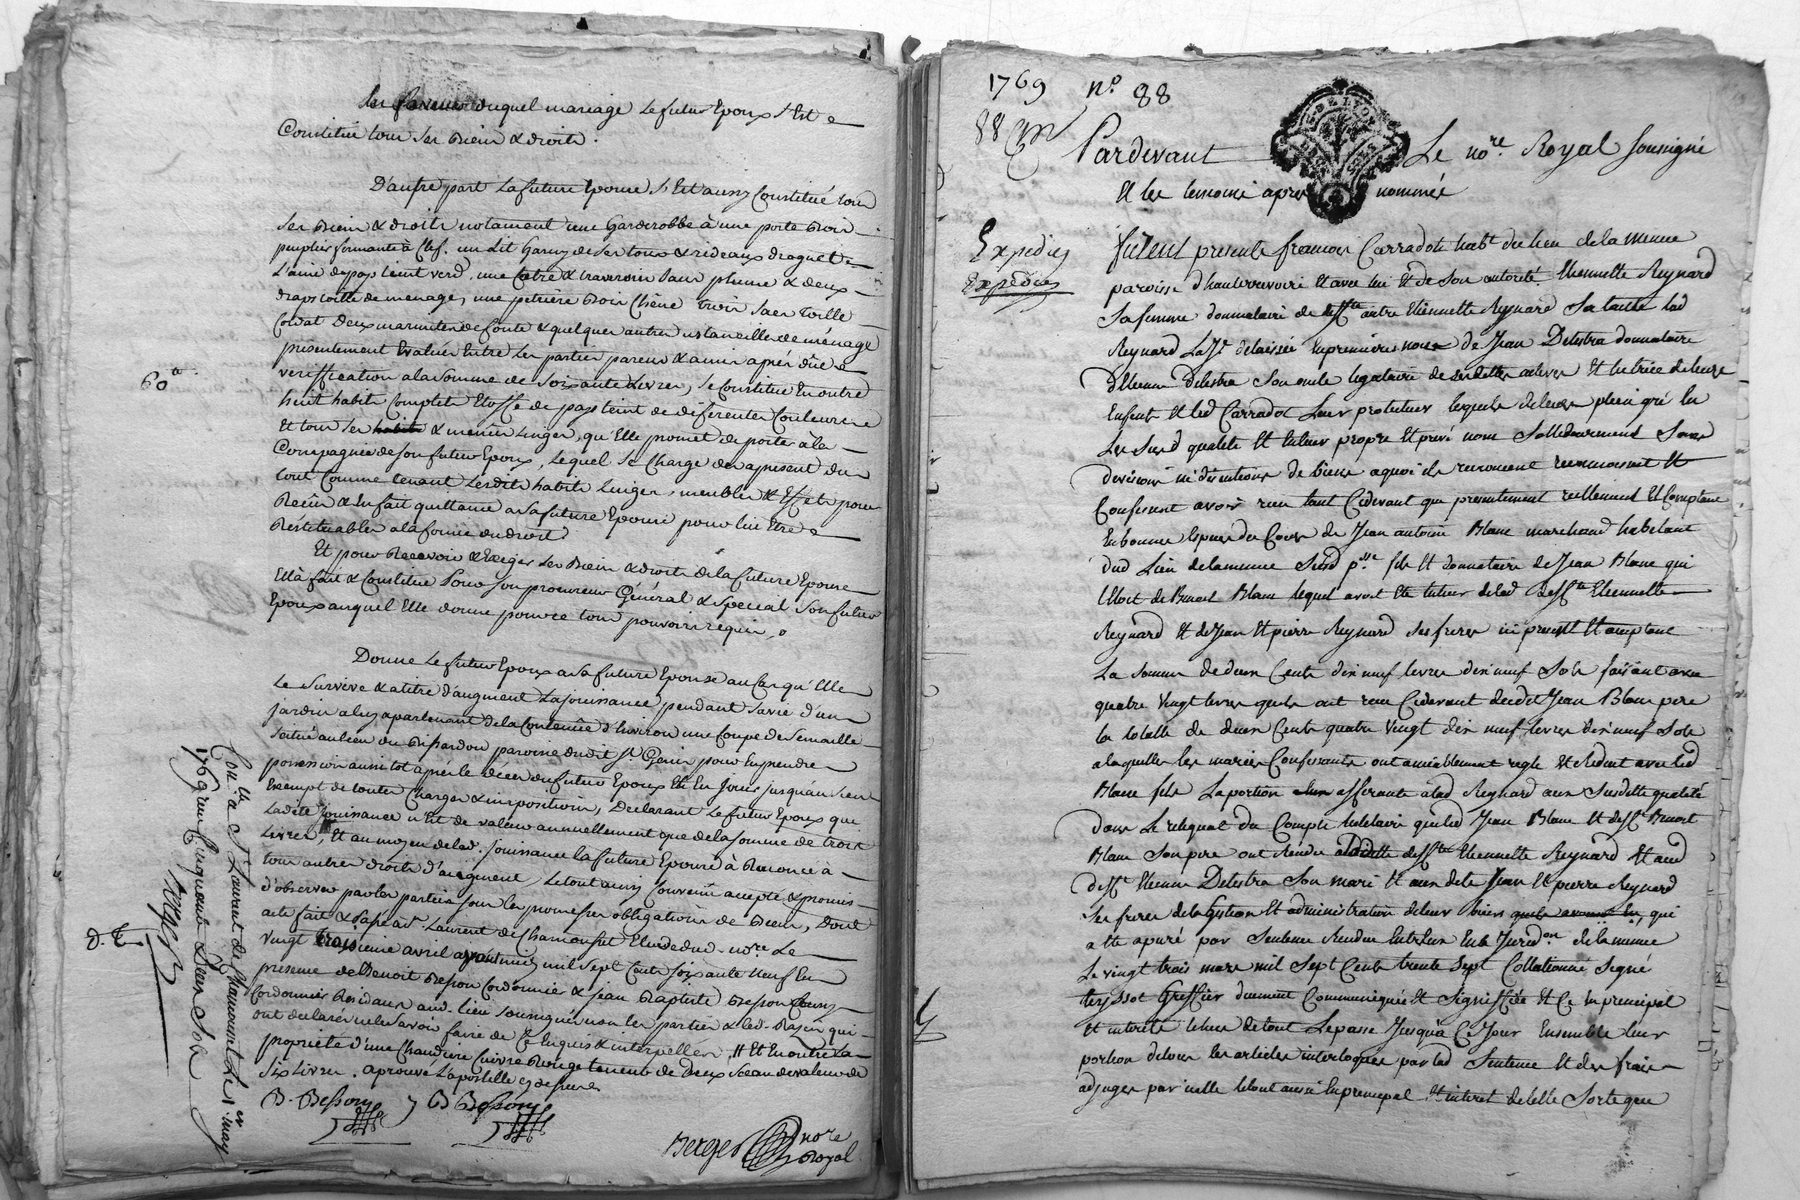 En faveur duquel mariage le futur Epoux s'Est
Constitué tous ses Biens & droits.
D'autre part La future Epouse s'Est aussy Constitué tous
ses Biens & droits notament une Garderobbe à une porte Bois
peuplier fermante à Clef. un Lit Garny de ses tours & rideaux droguet
Laine du pays teint verd, une & traversin sans plume & deux
draps toille de menage, une petrière Bois Chêne trois sacs toille
Coldat Deux marmites de fonte & quelques autres ustancilles de ménage
présentement Evalués Entre les parties parens & amis après düe
veriffication a la somme de soixante Livres, se Constitue En outre
60#
huit habits Complets Etoffe de pays teint de différentes Couleurs
Et tous ses habits & menus Linges, qu'Elle promet de porter a la
Compagnie de son futur Epoux, Lequel se Charge des apresent du
tout Comme tenant Lesdits habits Linges, meubles & Effets pour
Recûs & En fait quittance a sa future Epouse pour lui Etre
Réstituables a la forme du droit
Et pour Recevoir & Exiger Les Biens & droits de la future Epouse
Ella fait & Constitue Pour son procureur Général & Special son futur
Epoux auquel Elle donne pour ce tous pouvoirs requis.
Donne Le futur Epoux a sa future Epouse au Cas qu'Elle
Le survive & a titre d'augment La jouissance pendant sa vie d'un
jardin a luy apartenant de la Contenüe d'Environ une Coupe de Semaille
situé au lieu du paroisse dudit St. Genis pour En prendre
possession aussitot après le décès du futur Epoux Et En Jouir jusqu'au sien
Exempt de toutes Charges & impositions, Declarant Le futur Epoux que
Ladite Jouissance n'Est de valeur annuellement que de la somme de trois
Livres, Et au moyen de lad. jouissance la future Epouse à Renoncé à
tous autres droits d'augment, Le tout aussy Convenu accepté & promis
d'observer par les parties sous les promesses obligations de Biens, Dont
acte fait & Passé a St. Laurent de Chamousset Etude dud. nore Le
vingt troisième avril avant midy mil sept Cents soixante neuf En
presence de Benoit Besson Cordonnier & Jean Baptiste Besson aussy
Cordonnier Residans aud. lieu soussignés non les parties & led. qui
ont declaré ne le savoir faire de Ce Enquis & interpellés, # Et En outre La
propriété d'une Chaudière Cuivre Rouge tenante de deux Seaux de valeur de
Six Livres. aprouvé L'apostille cy dessus
B. Besson J B Besson
Berger nore Royal
Conlé a St Laurent de Chamousset Le 1er may
1769 reçu Cinquante Deux Sols
Berger
d. E
1769 no 88
88
Pardevant Le nore. Royal soussigné
Et les temoins apres nommés
DE LYON
Expediés
Expediés
Furent presents francois Carradot habt. du lieu de la menue
paroisse d'hauterivoire Et avec lui Et de son autorité Etiennette Reynard
sa femme donnataire de deffte autre Etiennette Reynard sa tante lad
Reynard La Je. delaissée En premieres noces de Jean Delestra donnataire
d'Etienne delestra son oncle legataire de ses dettes actives Et tutrice de leurs
Enfants Et led Carradot leur protuteur lesquels de leurs plein gré En
Les susd qualités Et En leur propre Et privé nom Sollidairement Sans
division ni discution de biens aquoi ils renoncent reconnoissent Et
Confessent avoir recu tant Cidevant que presentement reellement Et Comptant
En bonnes Especes du Cours de Jean antoine Blanc marchand habitant
dud Lieu de la menue Susd psse. fils Et donnataire de Jean Blanc qui
L'Etoit de Benoit Blanc lequel avoit Eté tuteur de lad deffte Etiennette
Reynard Et de Jean Et pierre Reynard ses freres ici present Et acceptant
La somme de deux Cents dix neuf livres dix neuf Sols faisant avec
quatre vingt livres quils ont recu Cidevant dudit Jean Blanc pere
la totalle de deux Cents quatre vingt dix neuf livres dix neuf Sols
a laquelle les mariés Confessants ont amiablement reglé Et reduit avec led
Blanc fils La portion afferante a lad Reynard aux Susdittes qualités
dans Le reliquat du Compte tutelaire que led Jean Blanc Et defft Benoit
Blanc Son pere ont rendu a ladte deffte Etiennette Reynard Et aud
defft Etienne Delestra Son mari Et aux dits Jean Et pierre Reynard
ses freres de la Gestion Et administration de leurs biens qui
a Eté apuré par Sentence rendue Entr'Eux En la Juridon. de la menue
Le vingt trois mars mil Sept Cents trente Sept Collationné Signé
teyssot Greffier duement Communiquée Et Signiffiée Et Ce En principal
Et interets Echus de tout Le passé Jusqu'a Ce Jour Ensemble leur
portion de tous les articles interloqués par lad Sentence Et des frais
adjuges par icelle le tout aussi En principal Et interet de telle Sorte que